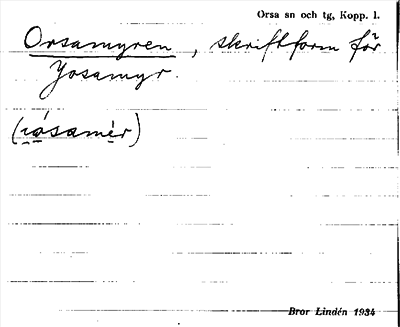 Orsa sn och tg, Kopp. l.
Orsamyren, skriftform för
Josamyr.
(i̯ǻsamér)
Bror Lindén 1934